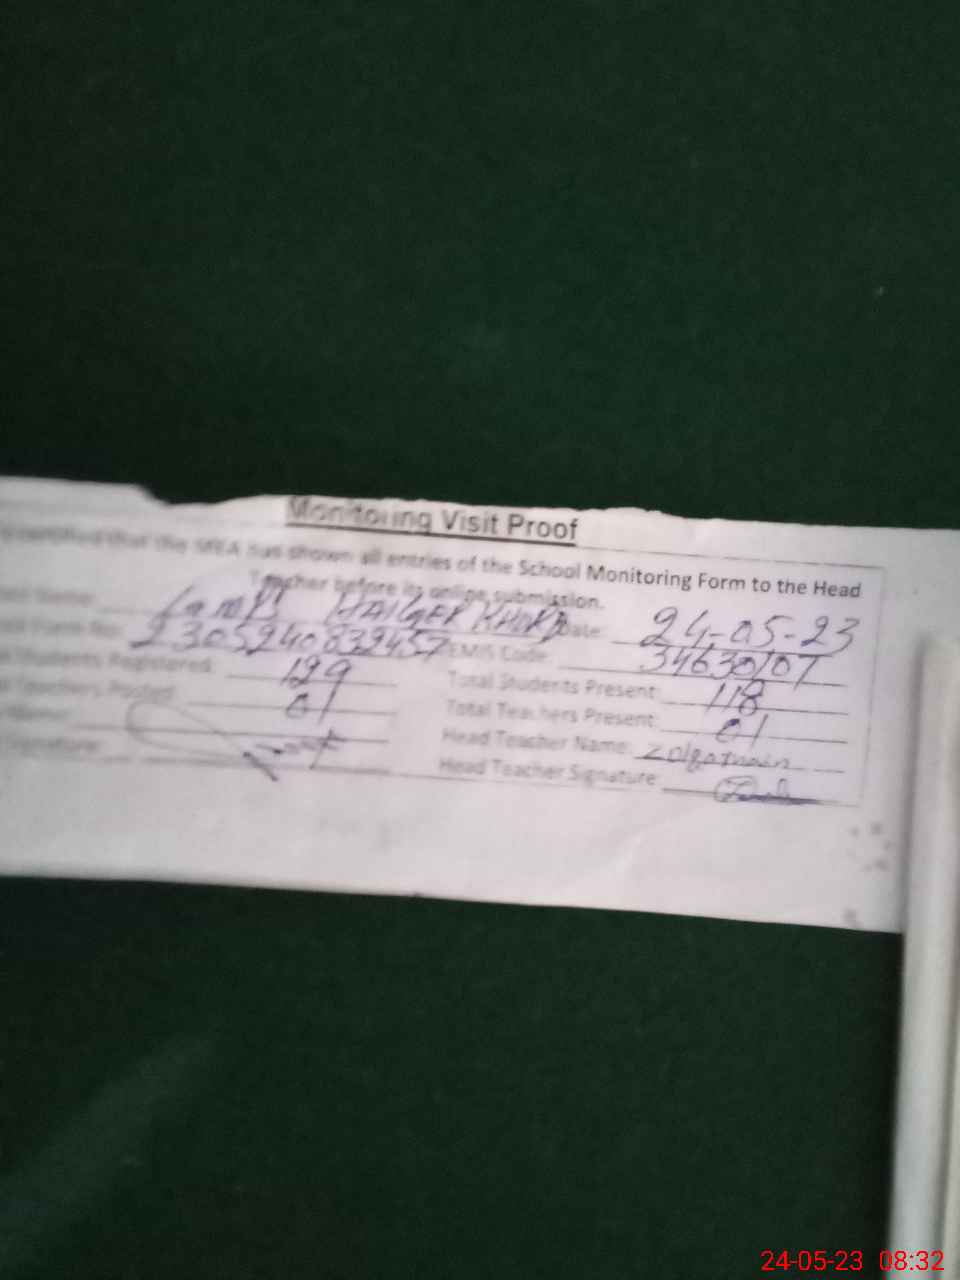 Monitoring Visit Proof
certified that the MEA has shown all entries of the School Monitoring Form to the Head
Teacher before its online submission.
Date: 24-05-23
2305240832457 EMIS Code: 34630107
Students Registered: 129 Total Students Present: 118
Teachers Posted: 01 Total Teachers Present: 01
Name: Head Teacher Name: Zolqarnain
Signature: Head Teacher Signature:
24-05-23 08:32